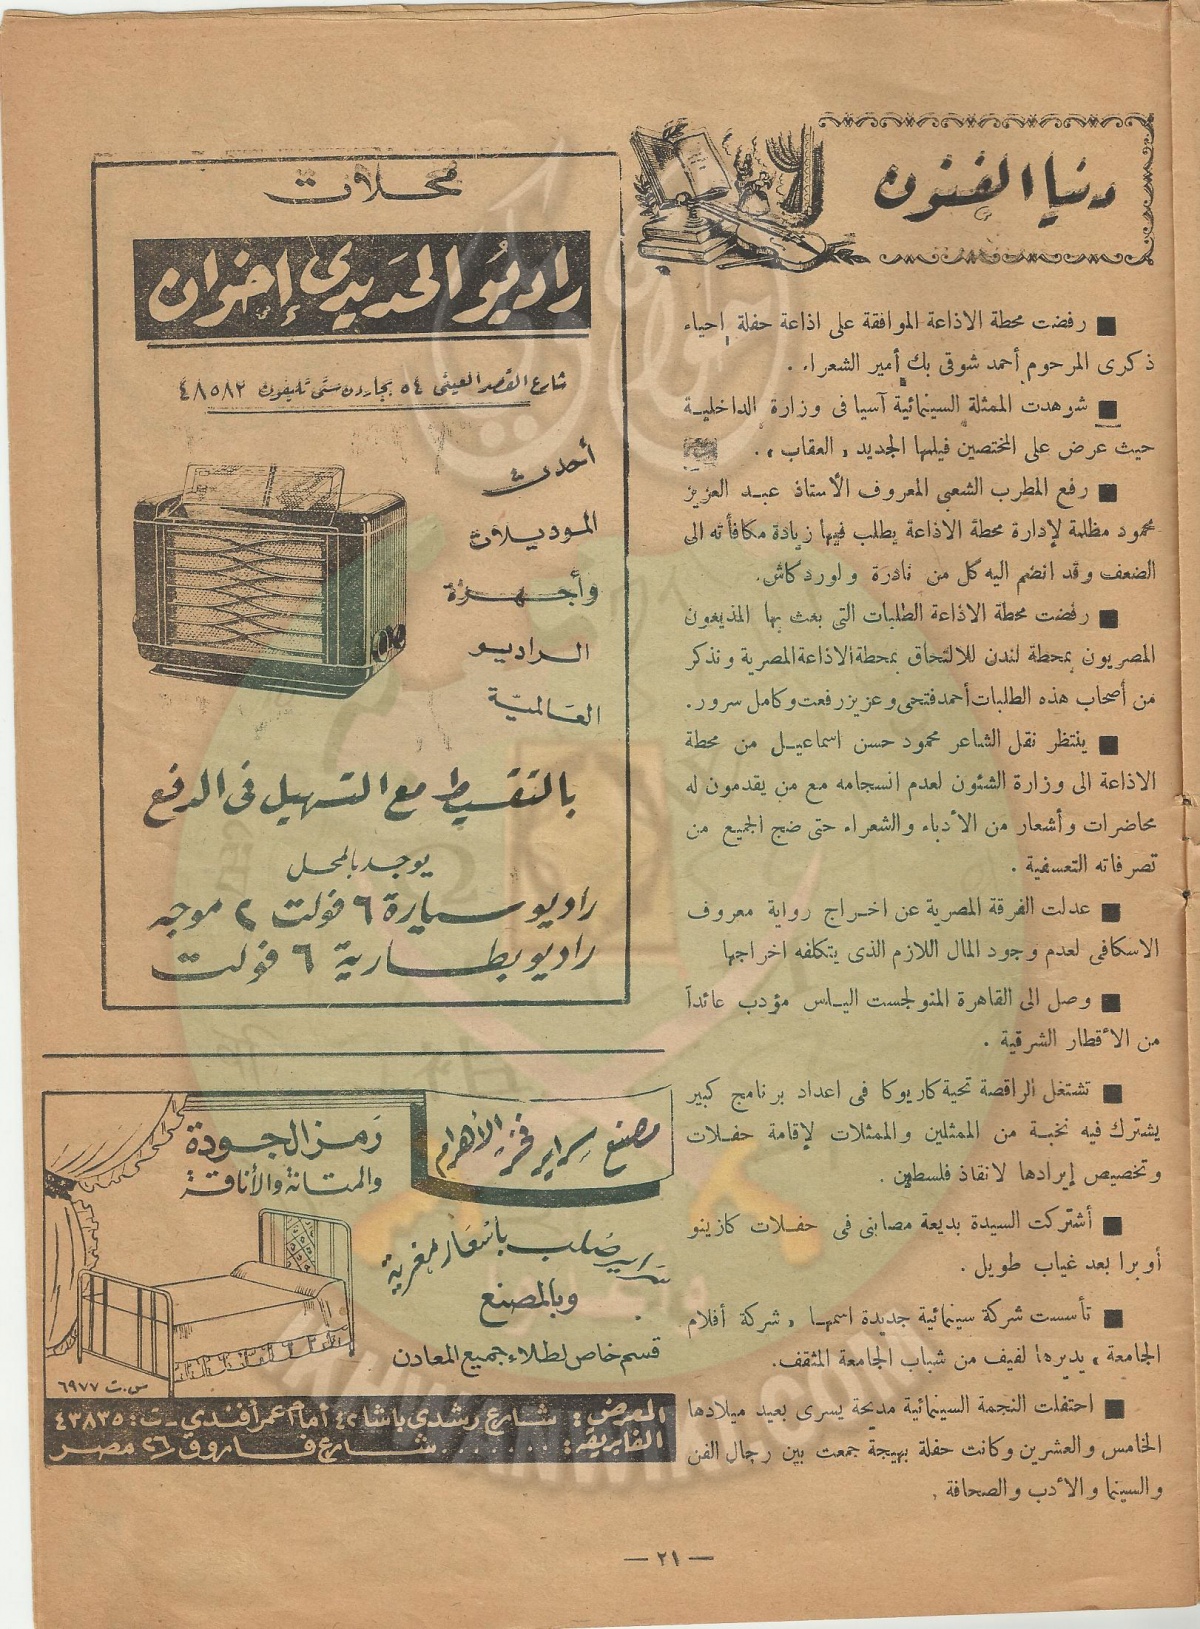 دنيا الفنون
■ رفضت محطة الاذاعة الموافقة على اذاعة حفلة احياء
ذكرى المرحوم أحمد شوقى بك أمير الشعراء .
■ شوهدت الممثلة السينمائية آسيا فى وزارة الداخلية
حيث عرض على المختصين فيلمها الجديد « العقاب » .
■ رفع المطرب الشعبى المعروف الأستاذ عبد العزيز
محمود مظلمة لإدارة محطة الاذاعة يطلب فيها زيادة مكافأته الى
الضعف وقد انضم اليه كل من نادرة ولوردكاش.
■ رفضت محطة الاذاعة الطلبات التى بعث بها المذيعون
المصريون بمحطة لندن للالتحاق بمحطة الاذاعة المصرية ونذكر
من أصحاب هذه الطلبات أحمد فتحى وعزيز رفعت وكامل سرور.
■ ينتظر نقل الشاعر محمود حسن اسماعيل من محطة
الاذاعة الى وزارة الشئون لعدم انسجامه مع من يقدمون له
محاضرات وأشعار من الأدباء والشعراء حتى ضج الجميع من
تصرفاته التعسفية .
■ عدلت الفرقة المصرية عن اخراج رواية معروف
الاسكافى لعدم وجود المال اللازم الذى يتكلفه اخراجها
■ وصل الى القاهرة المنولجست الياس مؤدب عائداً
من الأقطار الشرقية .
■ تشتغل الراقصة تحية كاريوكا فى اعداد برنامج كبير
يشترك فيه نخبة من الممثلين والممثلات لإقامة حفلات
وتخصيص إيرادها لانقاذ فلسطين .
■ أشتركت السيدة بديعة مصابنى فى حفلات كازينو
أوبرا بعد غياب طويل .
■ تأسست شركة سينمائية جديدة اسمها « شركة أفلام
الجامعة » يديرها لفيف من شباب الجامعة المثقف.
■ احتفلت النجمة السينمائية مديحة يسرى بعيد ميلادها
الخامس والعشرين وكانت حفلة بهيجة جمعت بين رجال الفن
والسينما والأدب والصحافة .
محلات
راديو الحديدى إخوان
شارع القصر العينى ٥٤ بجاردن ستى تليفون ٤٨٥٨٢
أحدث
الموديلات
وأجهزة
الراديو
العالمية
بالتقسيط مع التسهيل فى الدفع
يوجد بالمحل
راديو سيارة ٦ فولت ٢ موجه
راديو بطارية ٦ فولت
مصنع سراير فخر الأهرام
رمز الجودة
والمتانة والأناقة
سراير صلب بأسعار مغرية
وبالمصنع
قسم خاص لطلاء جميع المعادن
س.ت ٦٩٧٧
المعرض: شارع رشدي باشا ٤٢ أمام عمر أفندي - ت: ٤٣٨٣٥
الفابريقة: ....... شارع فاروق ٢٦ مصر
— ٢١ —